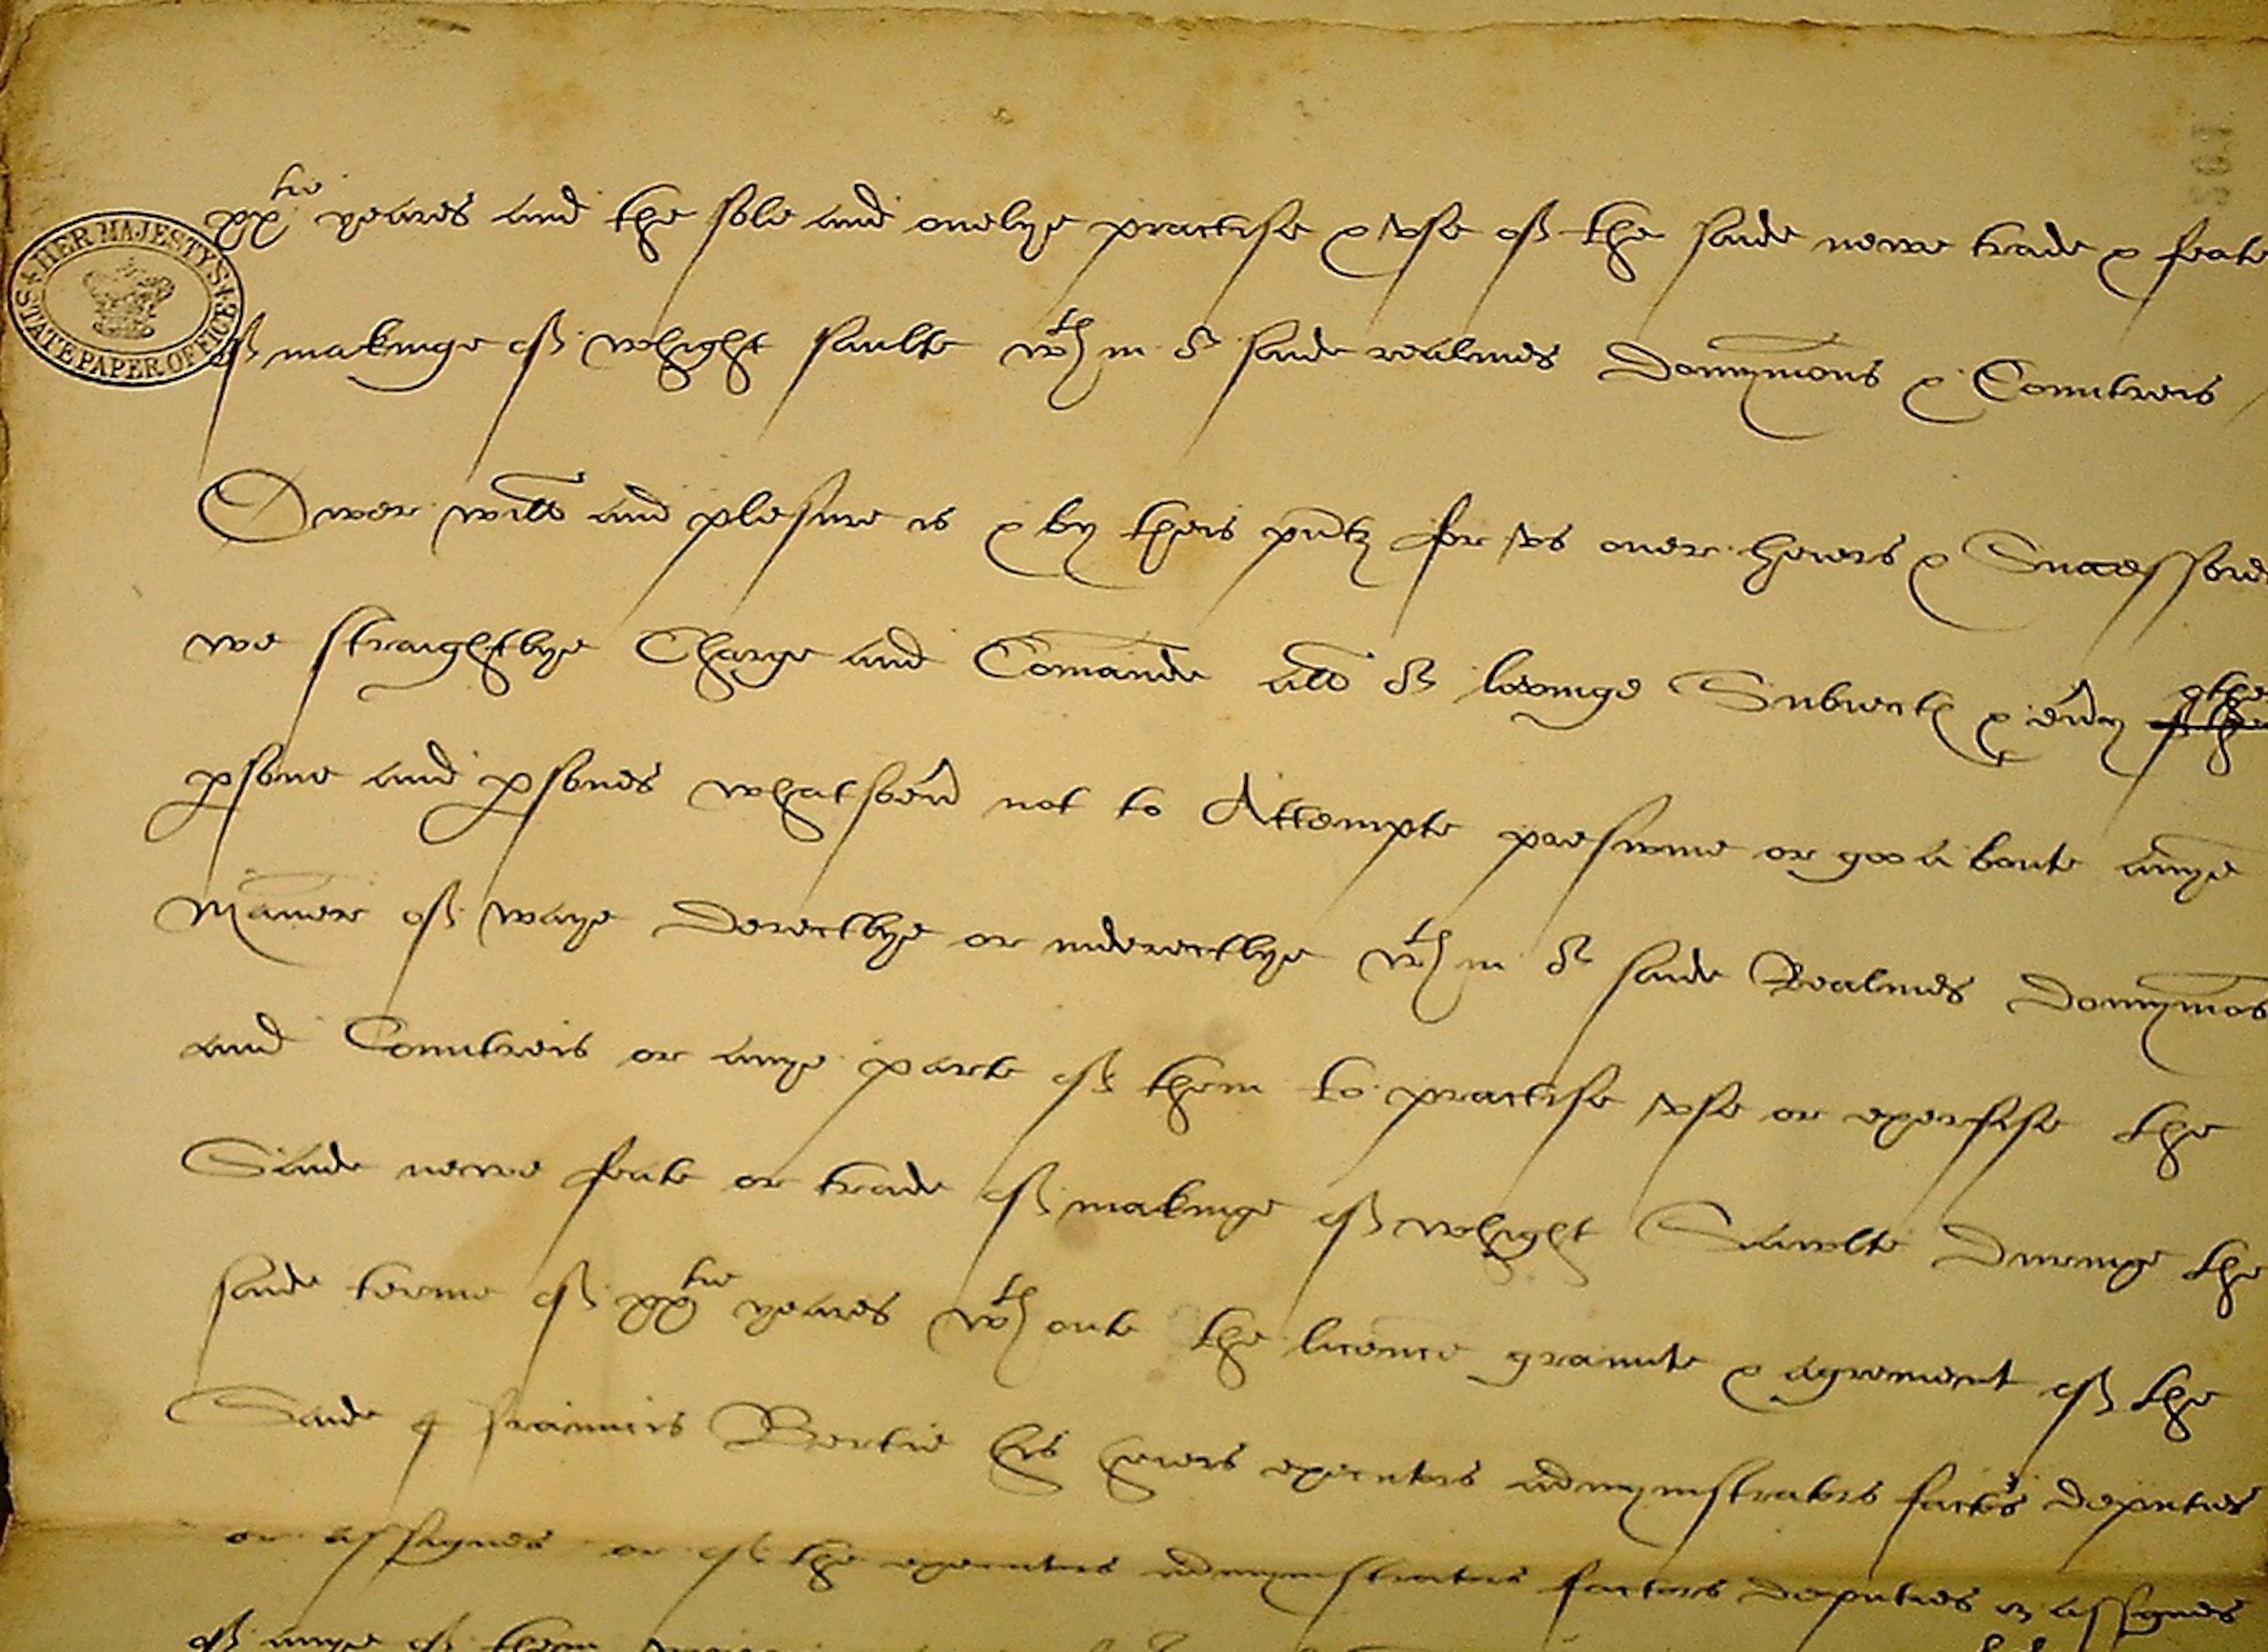 HER MAJESTY'S STATE PAPER OFFICE
xxtie yeares and the sole and onelye practise & vse of the saide newe trade & feate
of makinge of whight saulte wth in or saide realmes Domynions & Countreis
Ower will and plesure is & by theis pñtꝭ for vs ower heiers & Successors
we straightlye Charge and Comaunde all or lovinge Subiectꝭ & eũy other
ꝑsone and ꝑsones whatsoeũ not to Attempte presume or goo a boute anye
Maner of waye Derectlye or inderectlye wth in or saide Realmes Domynions
and Countreis or anye parte of them to practise vse or exersise the
Saide newe feate or trade of makinge of whight Saulte Duringe the
saide terme of xxtie yeares wth oute the licence graunte & agrement of the
Saide ffrauncis Bertie his heiers executors admynistrators factors deputies
or assignes or of the executors admynistrators factors deputies or assignes
of anye of them